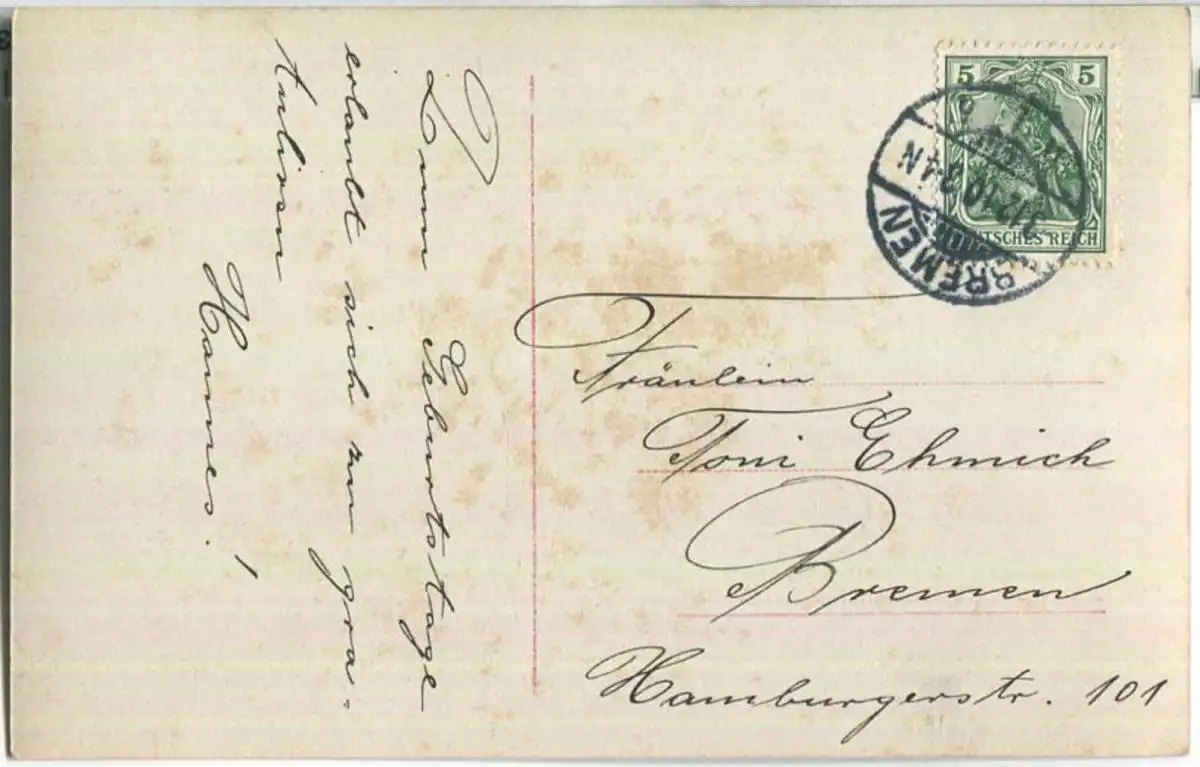 Zum Geburtstage
erlaubt sich zu gra-
tulieren
Hannes. !
5 5
DEUTSCHES REICH
BREMEN
Fräulein
Toni Ehmich
Bremen
Hamburgerstr. 101